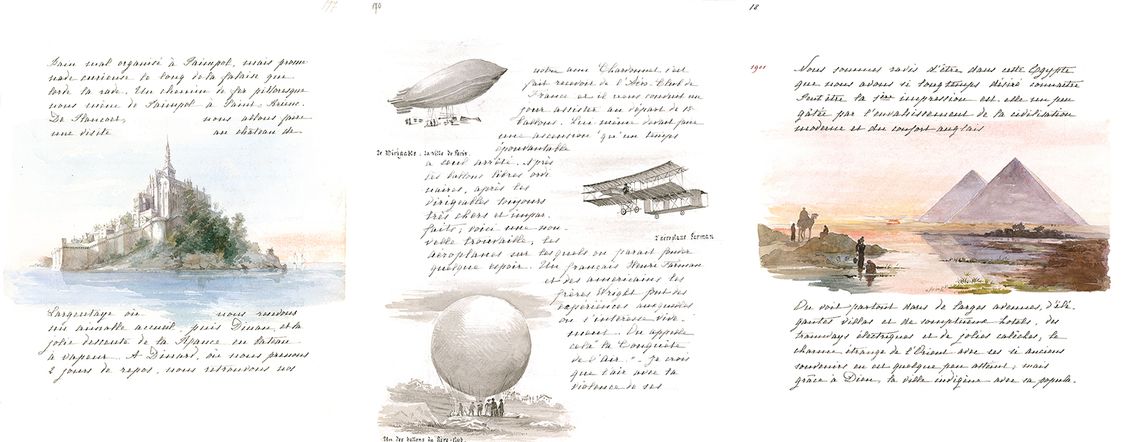 177
Train mal organisé à Paimpol, mais prome
nade curieuse le long de la falaise que
borde la rade. Un chemin de fer pittoresque
nous mène de Paimpol à Saint-Brieuc.
De Plancoët, nous allons faire
une visite au château de
Largentaye où nous rendons
un aimable accueil, puis Dinan, et la
jolie descente de la Rance en bateau
à vapeur. A Dinard, où nous prenons
2 jours de repos, nous retrouvons nos
170
notre ami Chardonnet s'est
fait recevoir de l'Aéro-Club de
France et il nous conduit un
jour assister au départ de 18
ballons. Lui même devait faire
une ascension qu'un temps
épouvantable
Le Dirigeable : la ville de Paris.
a seul arrêté. Après
les ballons libres ordi
naires, après les
dirigeables toujours
très chers et impar-
faits, voici une nou-
velle trouvaille, les
l'aéroplane Farman
aéroplanes sur lesquels on paraît fonder
quelque espoir. Un français Henri Farman
et des américains les
frères Wright font des
expériences auxquelles
on s'intéresse vive-
ment. On appelle
cela "la Conquête
de l'air". Je crois
que l'air avec la
violence de ses
Un des ballons du Aéro-Club.
18
1901
Nous sommes ravis d'être dans cette Egypte
que nous avons si longtemps désiré connaître
Peut être la 1ère impression est-elle un peu
gâtée par l'envahissement de la civilisation
moderne et du confort anglais
On voit partout dans de larges avenues, d'élé-
gantes villas et de somptueux hôtels, des
tramways électriques et de jolies calèches, le
charme étrange de l'Orient avec ses si anciens
souvenirs en est quelque peu atteint, mais
grâce à Dieu, la ville indigène avec sa popula-